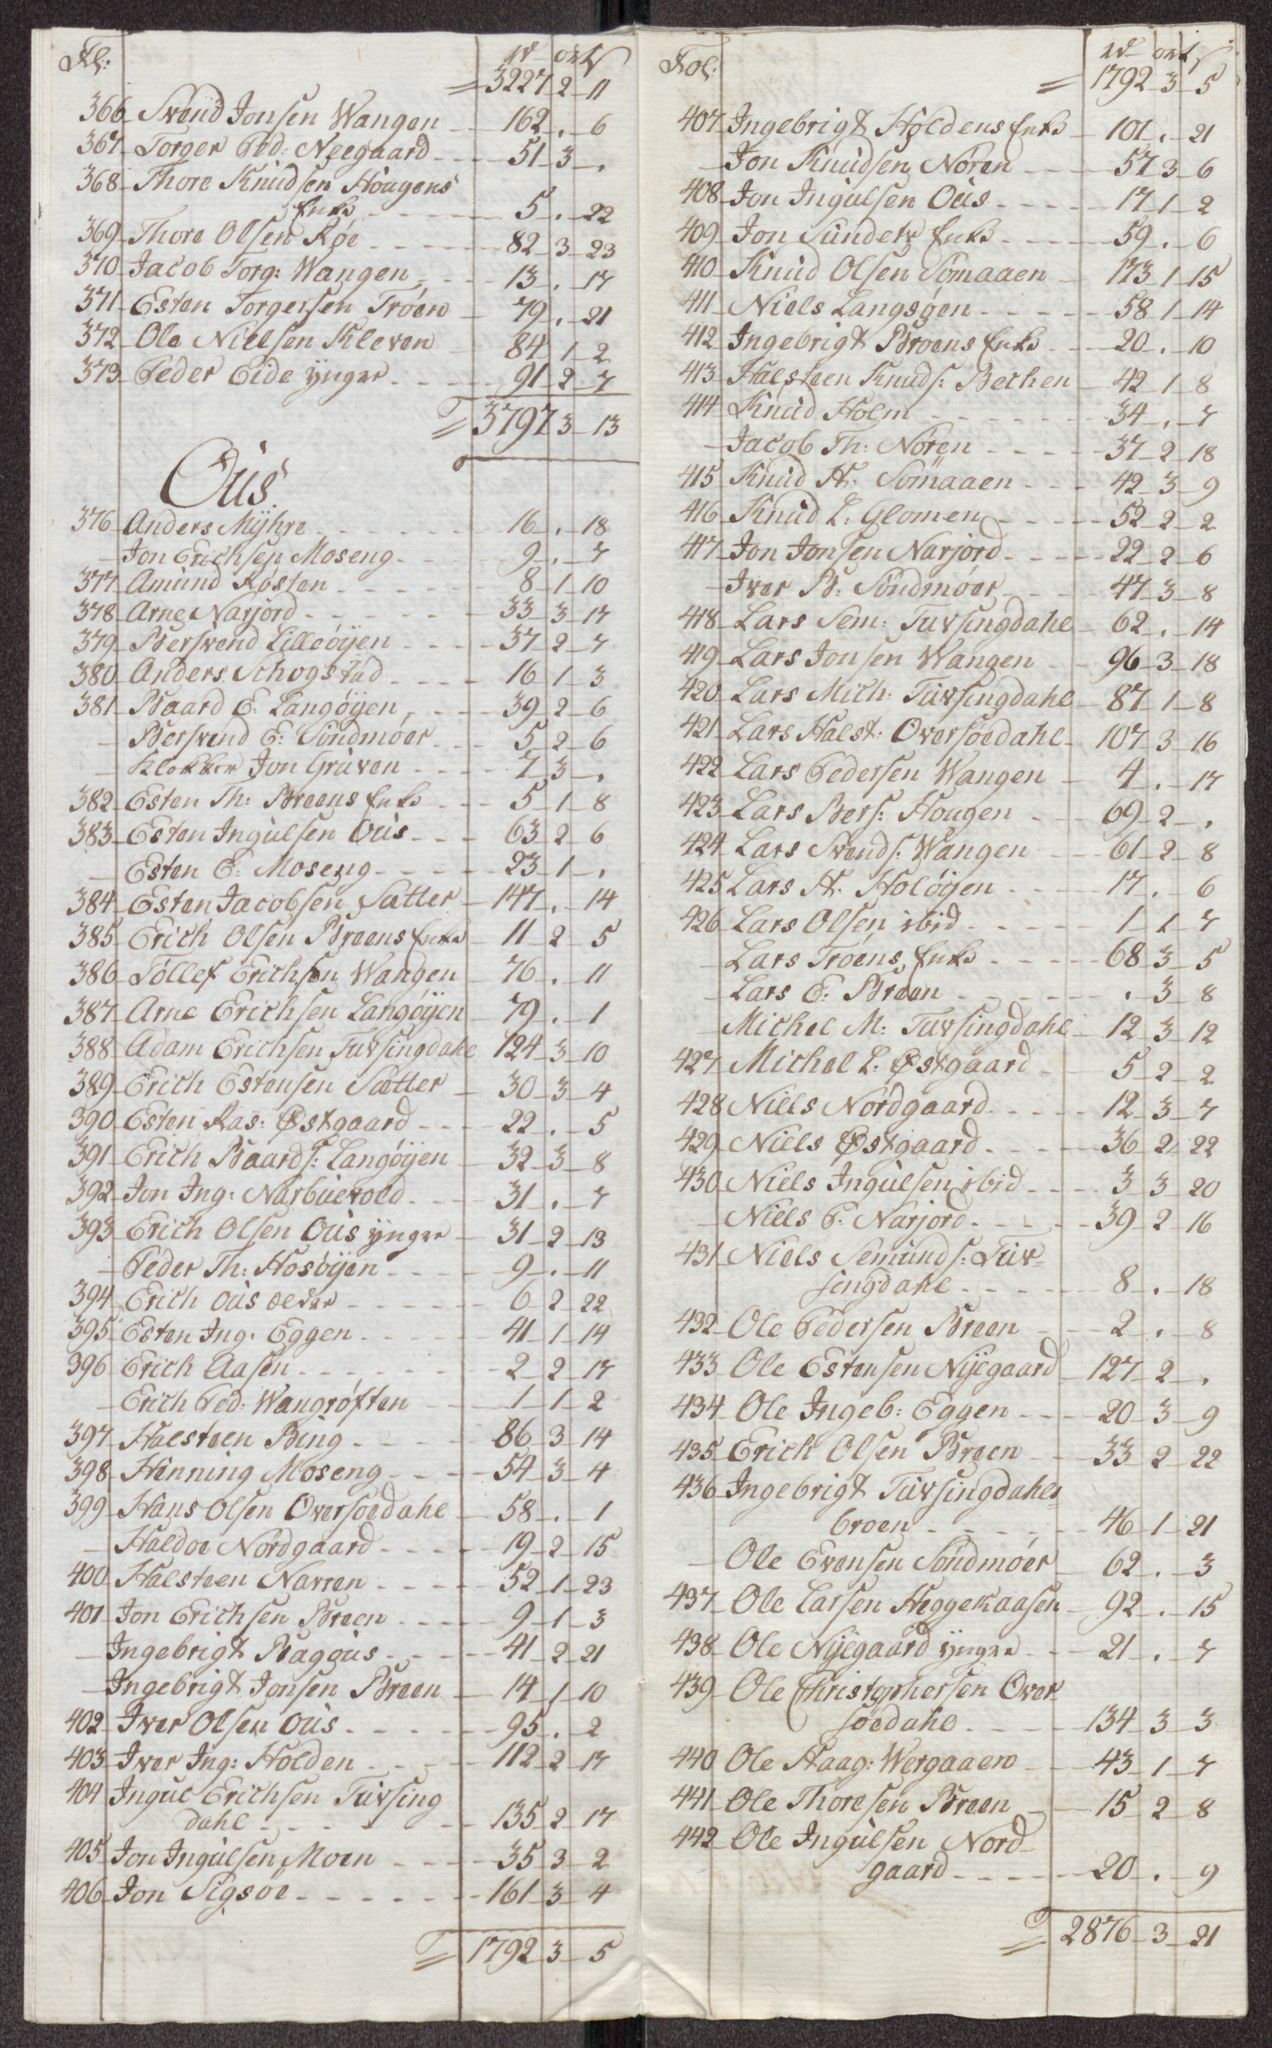 Fol: rd ort s
3227 2 11
366 Svend Jonsen Wangen 162 . 6
367 Torger Ped: Neegaard 51 3 .
368 Thore Knudsen Hougens
Enke 5 . 22
369 Thore Olsen Røe 82 3 23
370 Jacob Torg: Wangen 13 . 17
371 Esten Torgersen Trøen 79 . 21
372 Ole Nielsen Kleven 84 1 2
373 Peder Eide ÿngre 91 2 7
3797 3 13
Oùs
376 Anders Mÿhre 16 . 18
Jon Erichsen Moseng 9 . 7
377 Amùnd Røsten 8 1 10
378 Arne Narjord 33 3 17
379 Bersvend Lilleøÿen 37 2 7
380 Anders Schogstad 16 1 3
381 Baard E: Langøÿen 39 2 6
Bersvend E: Sùndmøer 5 2 6
Klokker Jon Grùven 7 3 .
382 Esten Th: Breens Enke 5 1 8
383 Esten Ingùlsen Oùs 63 2 6
Esten E: Moseng 23 1 .
384 Esten Jacobsen Sætter 147 . 14
385 Erich Olsen Breens Enke 11 2 5
386 Tøllef Erichsen Wangen 76 . 11
387 Arne Erichsen Langøÿen 79 . 1
388 Adam Erichsen Tùfsingdahl 124 3 10
389 Erich Estensen Sætter 30 3 4
390 Esten Ras: Østgaard 22 . 5
391 Erich Baards: Langøÿen 32 3 8
392 Jon Ing: Narbùevold 31 . 7
393 Erich Olsen Oùs ÿngre 31 2 13
Peder Th: Hosøÿen 9 . 11
394 Erich Oùs ælder 6 2 22
395 Esten Ing: Eggen 41 1 14
396 Erich Aasen 2 2 17
Erich Ped: Wangrøften 1 1 2
397 Halsteen Bing 86 3 14
398 Henning Moseng 54 3 4
399 Hans Olsen Oversøedahl 58 . 1
Haldoe Nordgaard 19 2 15
400 Halsteen Narren 52 1 23
401 Jon Erichsen Breen 9 1 3
Ingebrigt Baggùs 41 2 21
Ingebrigt Jonsen Breen 14 1 10
402 Iver Olsen Oùs 95 . 2
403 Iver Ing: Holden 112 2 17
404 Ingùl Erichsen Tùfsing
dahl 135 2 17
405 Jon Ingùlsen Moen 35 3 2
406 Jon Sigsøe 161 3 4
1792 3 5
Fol: rd ort s
1792 3 5
407 Ingebrigt Holdens Enke 101 . 21
Jon Knùdsen Noren 57 3 6
408 Jon Ingùlsen Oùs 17 1 2
409 Jon Sùndets Enke 59 . 6
410 Knùd Olsen Sømaaen 173 1 15
411 Niels Langsøen 58 1 14
412 Ingebrigt Broens Enke 20 . 10
413 Halsteen Knùds: Bechen 42 1 8
414 Knùd Holm 34 . 7
Jacob Th: Noren 37 2 18
415 Knùd H: Sømaaen 42 3 9
416 Knùd L: Glomen 52 2 2
417 Jon Jonsen Narjord 22 2 6
Iver B: Sùndmøer 47 3 8
418 Lars Sem: Tùfsingdahl 62 . 14
419 Lars Jonsen Wangen 96 3 18
420 Lars Mich: Tùfsingdahl 87 1 8
421 Lars Halst: Oversøedahl 107 3 16
422 Lars Pedersen Wangen 4 . 17
423 Lars Bers: Hougen 69 2 .
424 Lars Svends: Wangen 61 2 8
425 Lars H: Holøÿen 17 . 6
426 Lars Olsen ibid 1 1 7
Lars Trøens Enke 68 3 5
Lars E: Breen . 3 8
Michel M: Tùfsingdahl 12 3 12
427 Michel L: Østgaard 5 2 2
428 Niels Nordgaard 12 3 7
429 Niels Østgaard 36 2 22
430 Niels Ingùlsen ibid 3 3 20
Niels P: Narjord 39 2 16
431 Niels Semùnds: Tùf-
singdahl 8 . 18
432 Ole Pedersen Breen 2 . 8
433 Ole Estensen Nÿegaard 127 2 .
434 Ole Ingeb: Eggen 20 3 9
435 Erich Olsen Breen 33 2 22
436 Ingebrigt Tùfsingdahls
broen 46 1 21
Ole Evensen Sùndmøer 62 . 3
437 Ole Larsen Heggekaasen 92 . 15
438 Ole Nÿegaard ÿngre 21 . 7
439 Ole Christophersen Over
søedahl 134 3 3
440 Ole Haag: Wergaaen 43 1 7
441 Ole Thoresen Breen 15 2 8
442 Ole Ingùlsen Nord
gaard 20 . 9
2876 3 21